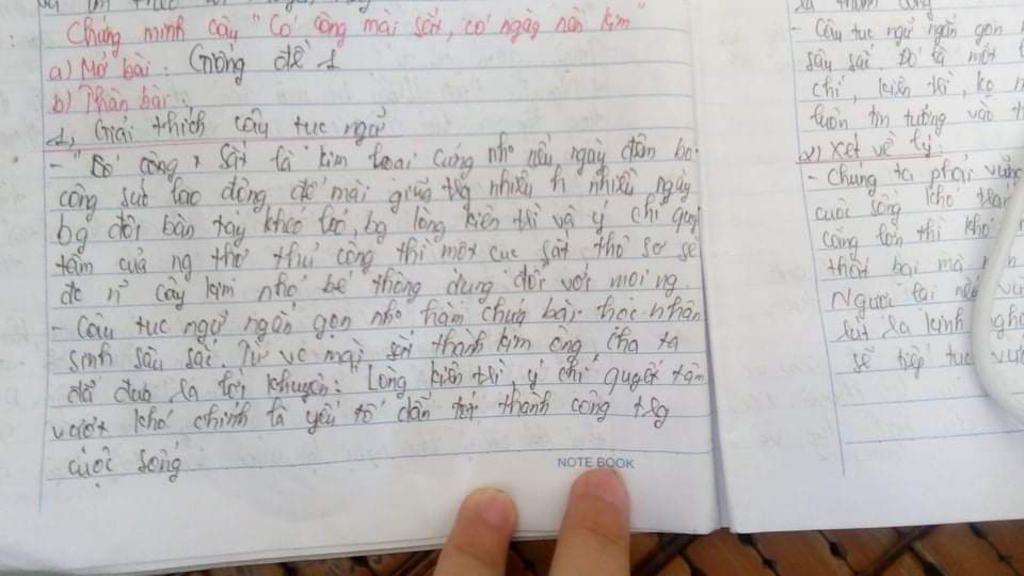 Chứng minh câu "Có công mài sắt, có ngày nên kim"
a) Mở bài: Giống đề 1
b) Thân bài:
1, Giải thích câu tục ngữ
- "Có công, sắt là kim loại cứng nhg nếu ngày đêm bỏ
công sức lao động để mài giũa tlg nhiều h nhiều ngày
bg đôi bàn tay khéo léo, bg lòng kiên trì và ý chí quyết
tâm của ng thợ thủ công thì một cục sắt thô sơ sẽ
cây kim nhỏ bé thông dụng đối với mọi ng.
- Câu tục ngữ ngắn gọn nhg hàm chứa bài học nhân
sinh sâu sắc. Từ vc mài sắt thành kim ông cha ta
đã đưa ra lời khuyên: "Lòng kiên trì, ý chí quyết tâm
vượt khó chính là yếu tố dẫn tới thành công tlg
cuộc sống
NOTE BOOK
- Câu tục ngữ ngắn gọn
sâu sắc. Đó là một
chí, kiên trì, ko
luôn tin tưởng vào
2) Xét về lý:
- Chúng ta phải
cuộc sống khó
càng lớn thì khó
thất bại mà
Người lại nếu
rút ra kinh
sẽ tiếp tục